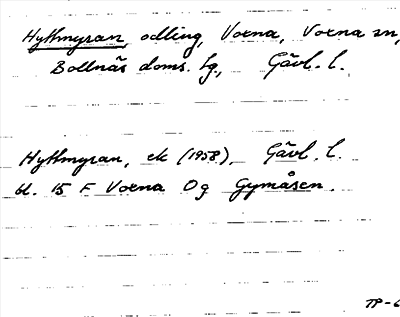 Hyttmyran, odling, Voxna, Voxna sn,
Bollnäs doms. lg, Gävl. l.
Hyttmyran, ek (1958), Gävl. l.
bl. 15 F Voxna Og Gymåsen.